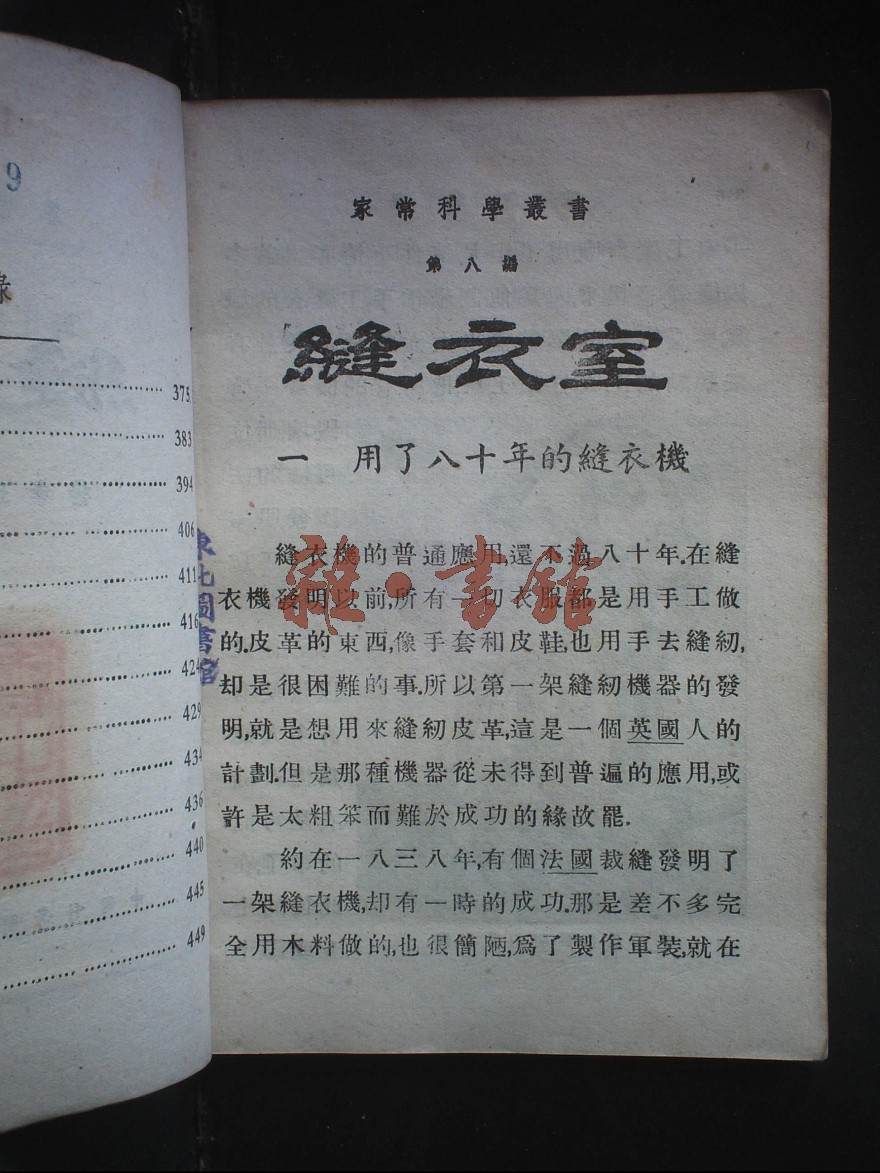 9
錄
375
383
394
406
411
416
424
429
434
436
440
445
449
東北圖書館
家常科學叢書
第八編
縫衣室
一 用了八十年的縫衣機
縫衣機的普通應用,還不過八十年.在縫
衣機發明以前,所有一切衣服都是用手工做
的.皮革的東西,像手套和皮鞋,也用手去縫紉,
却是很困難的事.所以第一架縫紉機器的發
明,就是想用來縫紉皮革,這是一個英國人的
計劃.但是那種機器從未得到普遍的應用,或
許是太粗笨而難於成功的緣故罷.
約在一八三八年,有個法國裁縫發明了
一架縫衣機,却有一時的成功.那是差不多完
全用木料做的,也很簡陋,爲了製作軍裝,就在
雜·書館